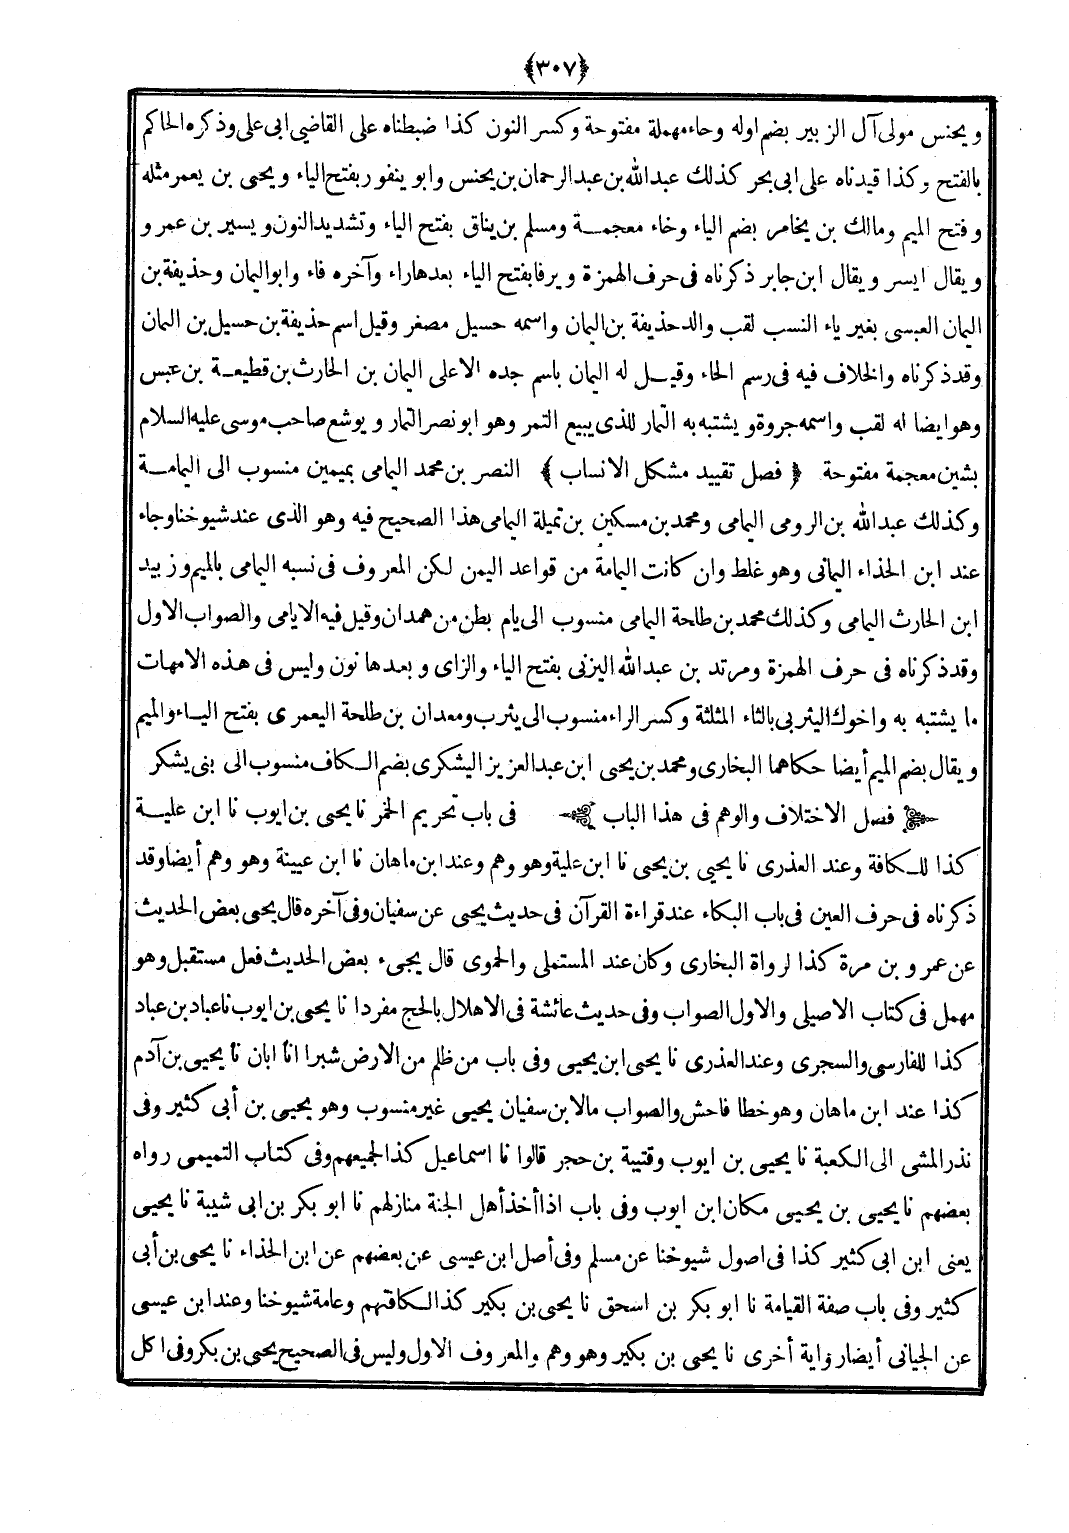 ﴿٣٠٧﴾
ويحنس مولى آل الزبير بضم اوله وحاء مهملة مفتوحة وكسر النون كذا ضبطناه على القاضي ابى على وذكره الحاكم
بالفتح وكذا قيدناه على ابى بحر كذلك عبدالله بن عبدالرحمان بن يحنس وابو يعفور بفتح الياء ويحيى بن يعمر مثله
وفتح الميم ومالك بن يخامر بضم الياء وخاء معجمة ومسلم بن يناق بفتح الياء وتشديد النون ويسير بن عمرو
ويقال ايسر ويقال ابن جابر ذكرناه فى حرف الهمزة ويرفا بفتح الياء بعدها راء وآخره فاء وابو اليمان وحذيفة بن
اليمان العبسى بغير ياء النسب لقب والد حذيفة بن اليمان واسمه حسيل مصغر وقيل اسم حذيفة بن حسيل بن اليمان
وقد ذكرناه والخلاف فيه فى رسم الحاء وقيل له اليمان باسم جده الاعلى اليمان بن الحارث بن قطيعة بن عبس
وهو ايضا له لقب واسمه جروة ويشتبه به التمار للذى يبيع التمر وهو ابو نصر التمار ويوشع صاحب موسى عليه السلام
بشين معجمة مفتوحة ﴿ فصل تقييد مشكل الانساب ﴾ النصر بن محمد اليمامى بميمين منسوب الى اليمامة
وكذلك عبدالله بن الرومى اليمامى ومحمد بن مسكين بن تميلة اليمامى هذا الصحيح فيه وهو الذى عند شيوخنا وجاء
عند ابن الحذاء اليمانى وهو غلط وان كانت اليمامة من قواعد اليمن لكن المعروف فى نسبه اليمامى بالميم وزبيد
ابن الحارث اليامى وكذلك محمد بن طلحة اليامى منسوب الى يام بطن من همدان وقيل فيه الايامى والصواب الاول
وقد ذكرناه فى حرف الهمزة ومرتد بن عبدالله اليزنى بفتح الياء والزاى وبعدها نون وليس فى هذه الامهات
ما يشتبه به واخوك اليثربى بالثاء المثلثة وكسر الراء منسوب الى يثرب ومعدان بن طلحة اليعمرى بفتح الياء والميم
ويقال بضم الميم أيضا حكاهما البخارى ومحمد بن يحيى ابن عبدالعزيز اليشكرى بضم الكاف منسوب الى بنى يشكر
فصل الاختلاف والوهم فى هذا الباب فى باب تحريم الخمر نا يحيى بن ايوب نا ابن علية
كذا للكافة وعند العذرى نا يحيى بن يحيى نا ابن علية وهو وهم وعند ابن ماهان نا ابن عيينة وهو وهم أيضا وقد
ذكرناه فى حرف العين فى باب البكاء عند قراءة القرآن فى حديث يحيى عن سفيان وفى آخره قال يحيى بعض الحديث
عن عمرو بن مرة كذا لرواة البخارى وكان عند المستملى والحموى قال يجىء بعض الحديث فعل مستقبل وهو
مهمل فى كتاب الاصيلى والاول الصواب وفى حديث عائشة فى الاهلال بالحج مفردا نا يحيى بن ايوب نا عباد بن عباد
كذا للفارسى والسجزى وعند العذرى نا يحيى ابن يحيى وفى باب من ظلم من الارض شبرا انا ابان نا يحيى بن آدم
كذا عند ابن ماهان وهو خطا فاحش والصواب ما لابن سفيان يحيى غير منسوب وهو يحيى بن أبى كثير وفى
نذر المشى الى الكعبة نا يحيى بن ايوب وقتيبة بن حجر قالوا نا اسماعيل كذا لجميعهم وفى كتاب التميمى رواه
بعضهم نا يحيى بن يحيى مكان ابن ايوب وفى باب اذا أخذ أهل الجنة منازلهم نا ابو بكر بن ابى شيبة نا يحيى
يعنى ابن ابى كثير كذا فى اصول شيوخنا عن مسلم وفى أصل ابن عيسى عن بعضهم عن ابن الحذاء نا يحيى بن أبى
كثير وفى باب صفة القيامة نا ابو بكر بن اسحق نا يحيى بن بكير كذا لكافتهم وعامة شيوخنا وعند ابن عيسى
عن الجيانى أيضا رواية أخرى نا يحيى بن بكير وهو وهم والمعروف الاول وليس فى الصحيح يحيى بن بكر وفى اكل